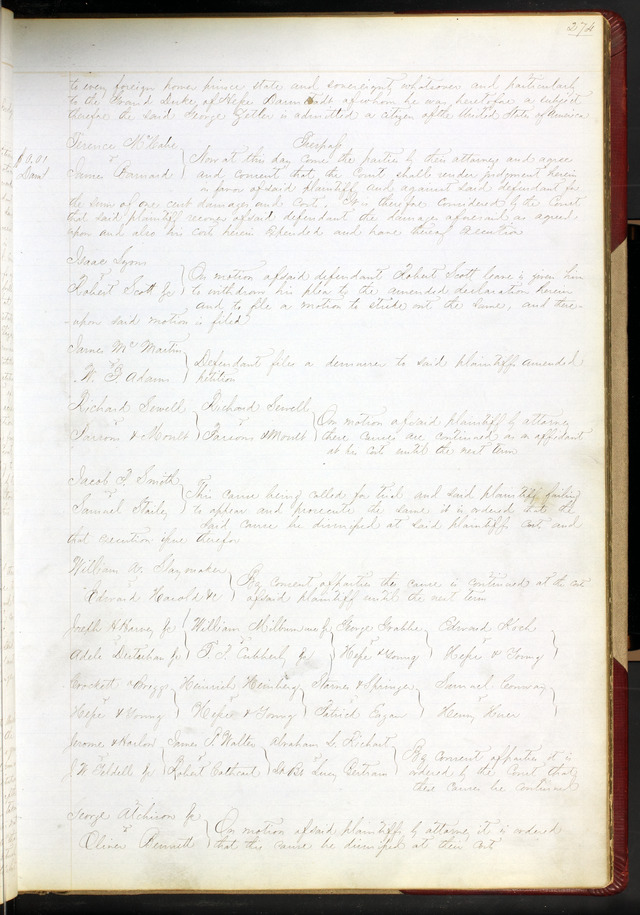 274
to every foreign power prince state and sovereignty whatsoever and particularly
to the Grand Duke of Hesse Darmstadt of whom he was heretofore a subject
therefor the said George Zeller is admitted a citizen of the United States of America
Terence McCabe
vs
James Barnard
$0.01
Damt
Trespass
Now at this day come the parties by their attorneys and agree
and consent that the Court shall render judgment herein
in favor of said plaintiff and against said defendant for
the sum of one cent damages and costs. It is therefor considered by the Court
that said plaintiff recover of said defendant the damages aforesaid as agreed
upon and also his cost herein expended and have thereof execution
Isaac Lyons
vs
Robert Scott Jr
On motion of said defendant Robert Scott leave is given him
to withdraw his plea to the amended declaration herein
and to file a motion to strike out the same, and there-
-upon said motion is filed
James McMartin
vs
W. J. Adams
Defendant files a demurrer to said plaintiffs amended
petition
Richard Sewell
vs
Parsons & Moult
Richard Sewell
vs
Parsons & Moult
On motion of said plaintiff by attorney
these causes are continued as on affidavit
at his cost until the next term
Jacob F. Smith
vs
Samuel Staily
This cause being called for trial and said plaintiff failing
to appear and prosecute the same it is ordered that the
said cause be dismissed at said plaintiffs cost and
that execution issue therefor
William A. Slaymaker
vs
Edward Harold &c
By consent of parties this cause is continued at the cost
of said plaintiff until the next term
Joseph H
Adele
William Milburn
George
vs
Hope & Young
Edward Koch
vs
Hope & Young
Crockett & Briggs
vs
Hope & Young
Heinrich
vs
Hope & Young
& Springer
vs
Patrick Egan
Samuel Conway
vs
Henry
Jerome &
J. W.
James P. Walter
vs
Robert Cathcourt
Abraham L.
Lucy Bertram
By consent of parties it is
ordered by the Court that
these causes be continued
George Atchison Jr
vs
Oliver Bennett
On motion of said plaintiffs by attorney it is ordered
that this cause be dismissed at their cost